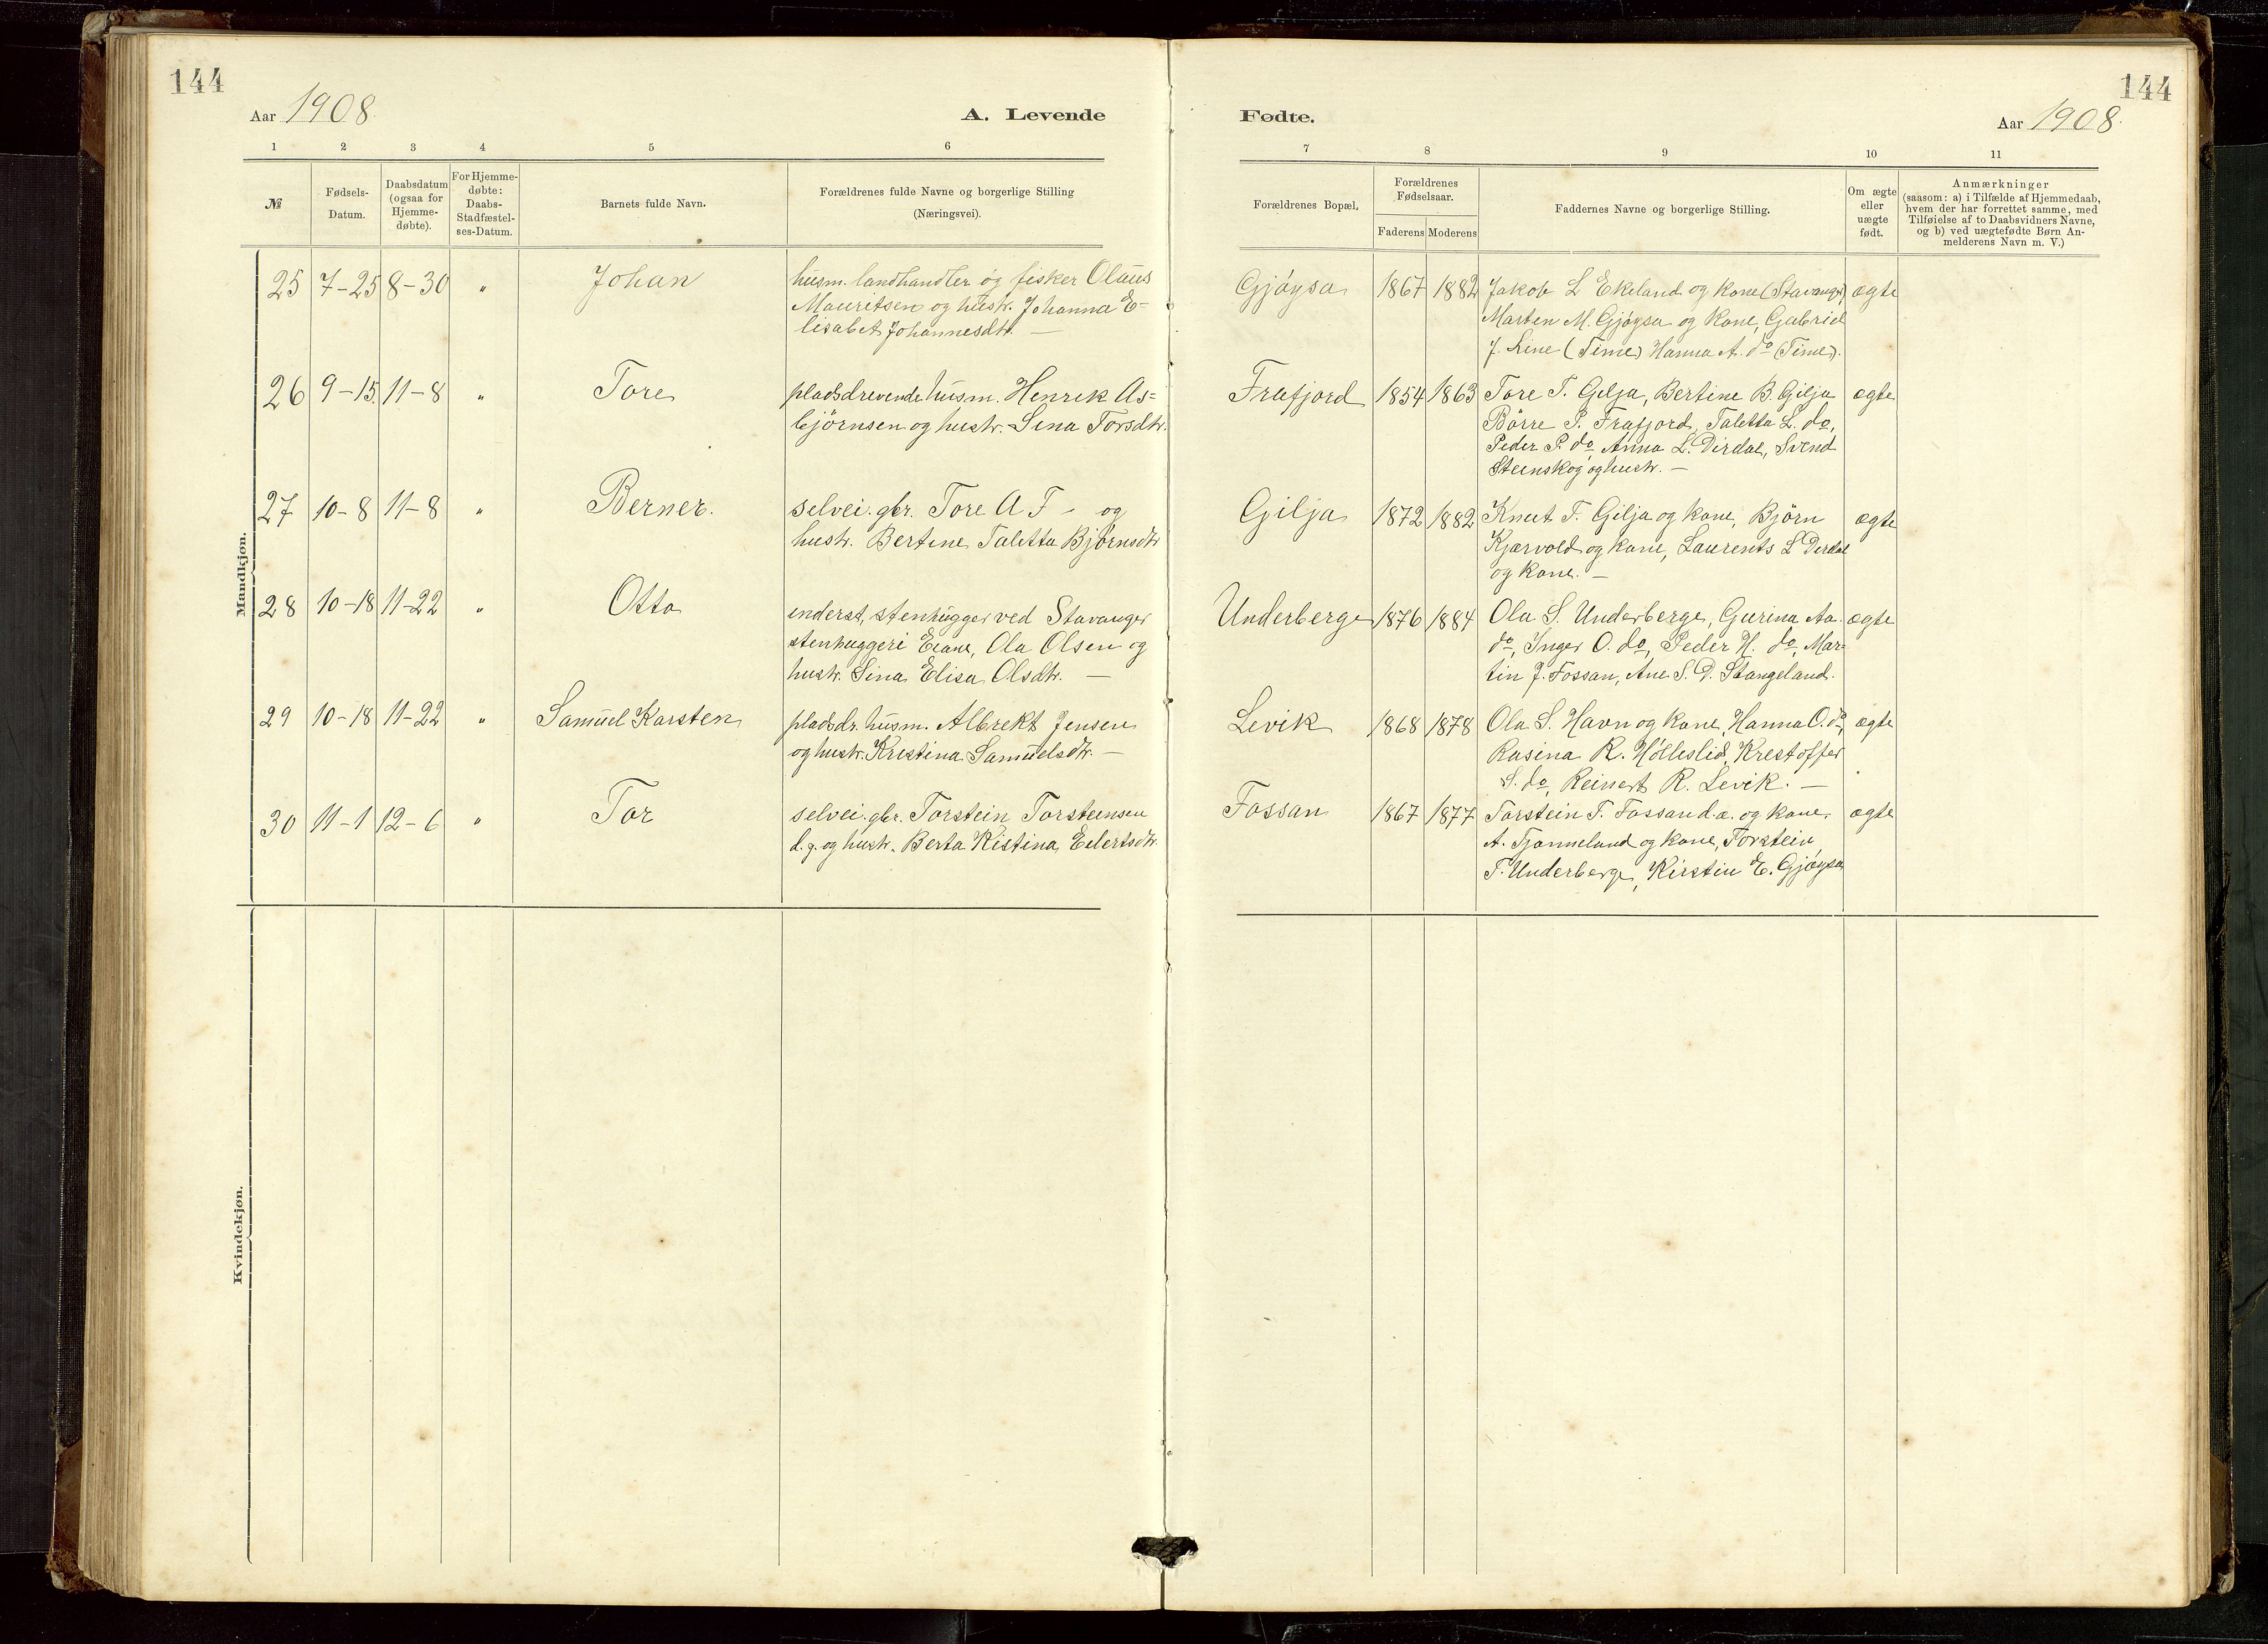 144
Aar 1908.
A. Levende
1 2 3 4 5 6
№
Fødsels-
Datum.
Daabsdatum
(ogsaa for
Hjemme-
døbte).
For Hjemme-
døbte:
Daabs-
Stadfæstel-
ses-Datum.
Barnets fulde Navn.
Forældrenes fulde Navne og borgerlige Stilling
(Næringsvei).
Mandkjøn.
25 7-25 8-30 " Johan
husm. landhandler og fisker Olaus
Mauritsen og hustr. Johanna E=
lisabet Johannesdtr. —
26 9-15. 11-8 " Tore
pladsdrevende husm. Henrik As=
björnsen og hustr. Sina Torsdtr.
27 10-8 11-8 " Berner.
selvei. gbr. Tore A T - og
hustr. Bertine Taletta Björnsdtr
28 10-18 11-22 " Otto
inderst, stenhugger ved Stavanger
stenhuggeri Eiane, Ola Olsen og
hustr. Sina Elisa Olsdtr. —
29 10-18 11-22 " Samuel Karsten
pladsdr. husm. Albrekt Jensen
og hustr. Kristina Samuelsdtr. —
30 11-1 12-6 " Tor
selvei. gbr. Torstein Torsteinsen
d.y. og hustr. Berta Kistina Eilertsdtr.
Kvindekjøn.
144
Fødte.
Aar 1908.
7 8 9 10 11
Forældrenes Bopæl.
Forældrenes
Fødselsaar.
Faderens Moderens
Faddernes Navne og borgerlige Stilling.
Om ægte
eller
uægte
født.
Anmærkninger
(saasom: a) i Tilfælde af Hjemmedaab,
hvem der har forrettet samme, med
Tilføielse af to Daabsvidners Navne,
og b) ved uægtefødte Børn An-
melderens Navn m. V.)
Gjøysa 1867 1882 Jakob L Ekeland og kone (Stavanger) ægte
Marten M. Gjøysa og kone, Gabriel
J. Line (Time) Hanna A. do (Time).
Frafjord 1854 1863 Tore T. Gilja, Bertine B. Gilja ægte
Börre P. Frafjord, Taletta L. do,
Peder P. do Anna L. Dirdal, Svend
Steinskog og hustr. —
Gilja 1872 1882 Knut T. Gilja og kone, Björn ægte
Kjærvold og kone, Laurents L Dirdal
og kone. —
Underberge 1876 1884 Ola S. Underberge, Gurina Aa. ægte
do, Inger O. do, Peder H. do, Mar=
tin J. Fossan, Ane S. D. Stangeland.
Levik 1868 1878 Ola S. Havn og kone, Hanna O. do, ægte
Rasina R. Hölleslid, Kristoffer
S. do, Reinert R. Levik. —
Fossan 1867 1877 Torstein T. Fossan d.æ. og kone, ægte
A. Tjønneland og kone, Torstein
T. Underberge, Kirstin E. Gjøysa